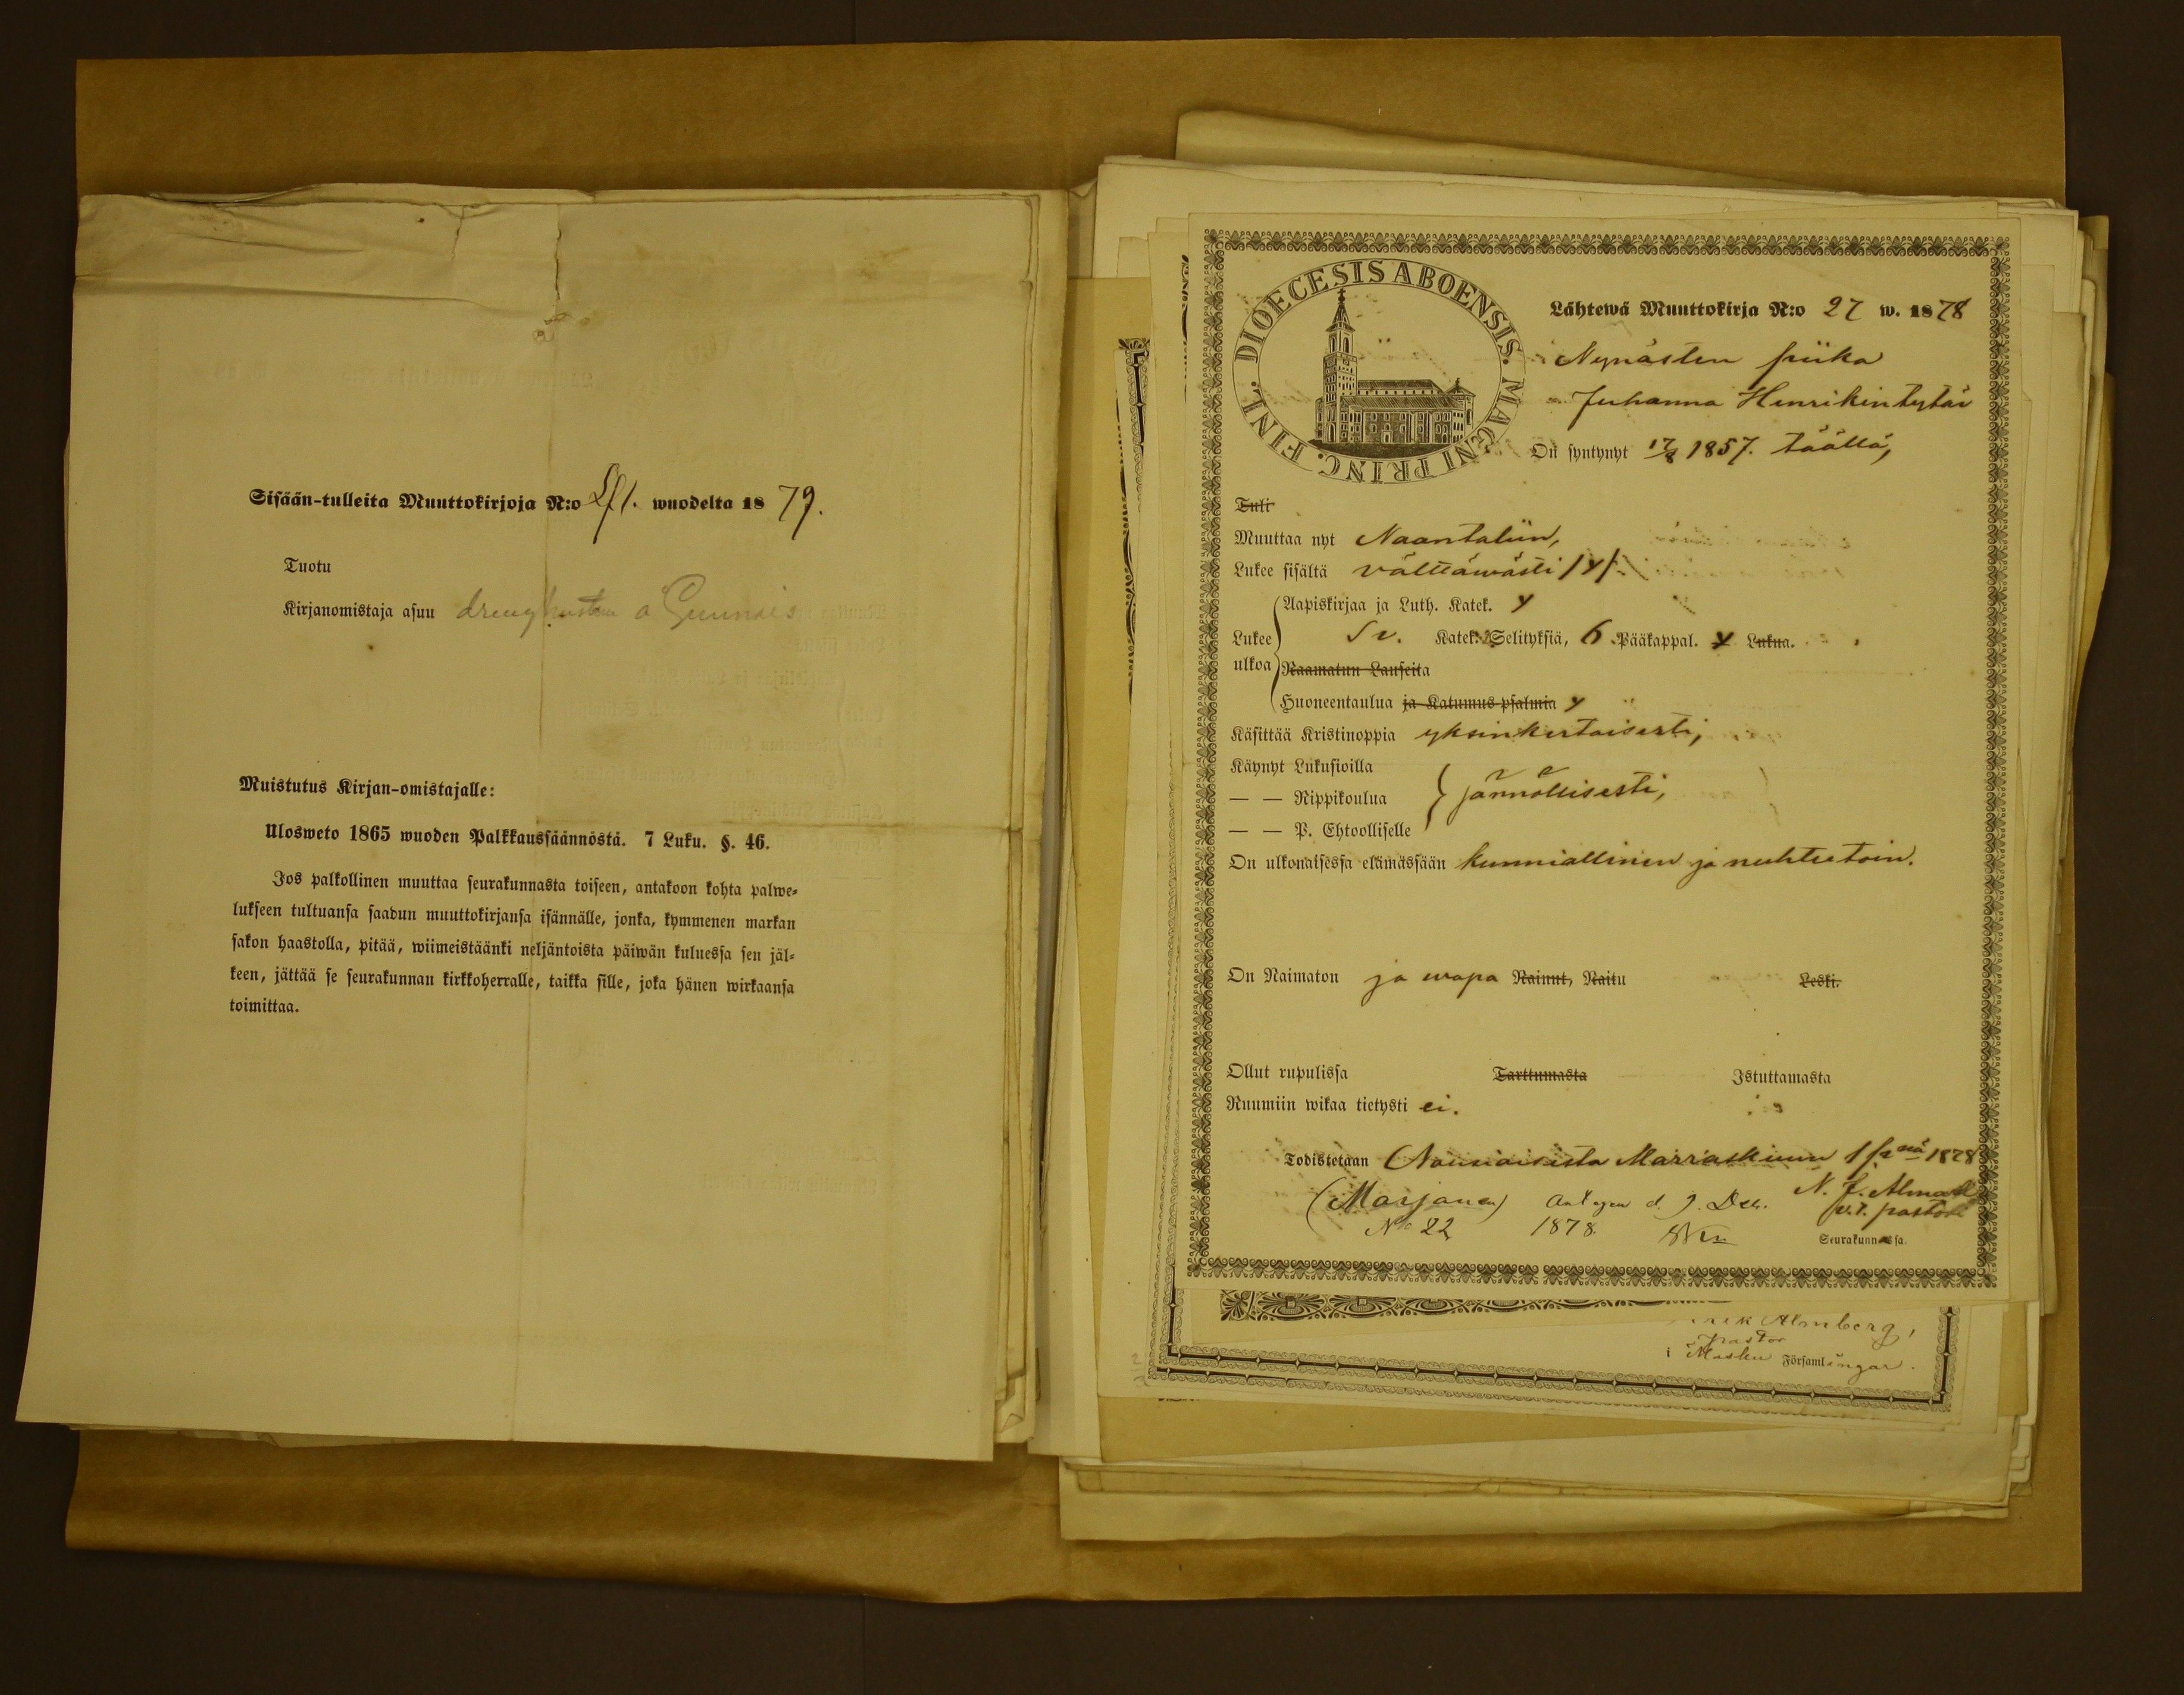 Sisään-tulleita Muuttokirjoja N:o wuodelta 18 79.
Tuotu
Kirjanomistaja asuu
Muistutus Kirjan-omistajalle:
Ulosweto 1865 wuoden Palkkaussäännöstä. 7 Luku. §. 46.
Jos palkollinen muuttaa seurakunnasta toiseen, antakoon kohta palwe-
lukseen tultuansa saadun muuttokirjansa isännälle, jonka, kymmenen markan
sakon haastolla, pitää, wiimeistäänki neljäntoista päiwän kuluessa sen jäl-
keen, jättää se seurakunnan kirkkoherralle, taikka sille, joka hänen wirkaansa
toimittaa.
DIOECESIS ABOENSIS. MAGNI PRINC. FINL.
Lähtewä Muuttokirja N:o 27 w. 1878
Nynästen piika
Juhanna Henrikintytär
On syntynyt 17/8 1857. täällä,
Tuli
Muuttaa nyt Naantaliin,
Lukee sisältä välttäwästi /y/.
Lukee ulkoa
Aapiskirjaa ja Luth. Katek. y
Sv. Katek. Selityksiä, 6 Pääkappal. y Lukua.
Raamatun Lauseita
Huoneentaulua ja Katumus psalmia y
Käsittää Kristinoppia yksinkertaisesti,
Käynyt Lukusioilla
— — Rippikoulua jännöllisesti,
— — P. Ehtoolliselle
On ulkonaisessa elämässään kunniallinen ja nuhteetoin.
On Naimaton ja wapa Nainut, Naitu Leski.
Ollut rupulissa Tarttumasta Istuttamasta
Ruumiin wikaa tietysti ei.
Todistetaan Nousiaisista Marraskuun 1 p:nä 1878
(Marjanen) Antagen d. 9. Dec. N. F.
No 22 1878. v.t. pastori
Seurakunnassa.
Almberg,
Pastor
i Masku Församlingar.